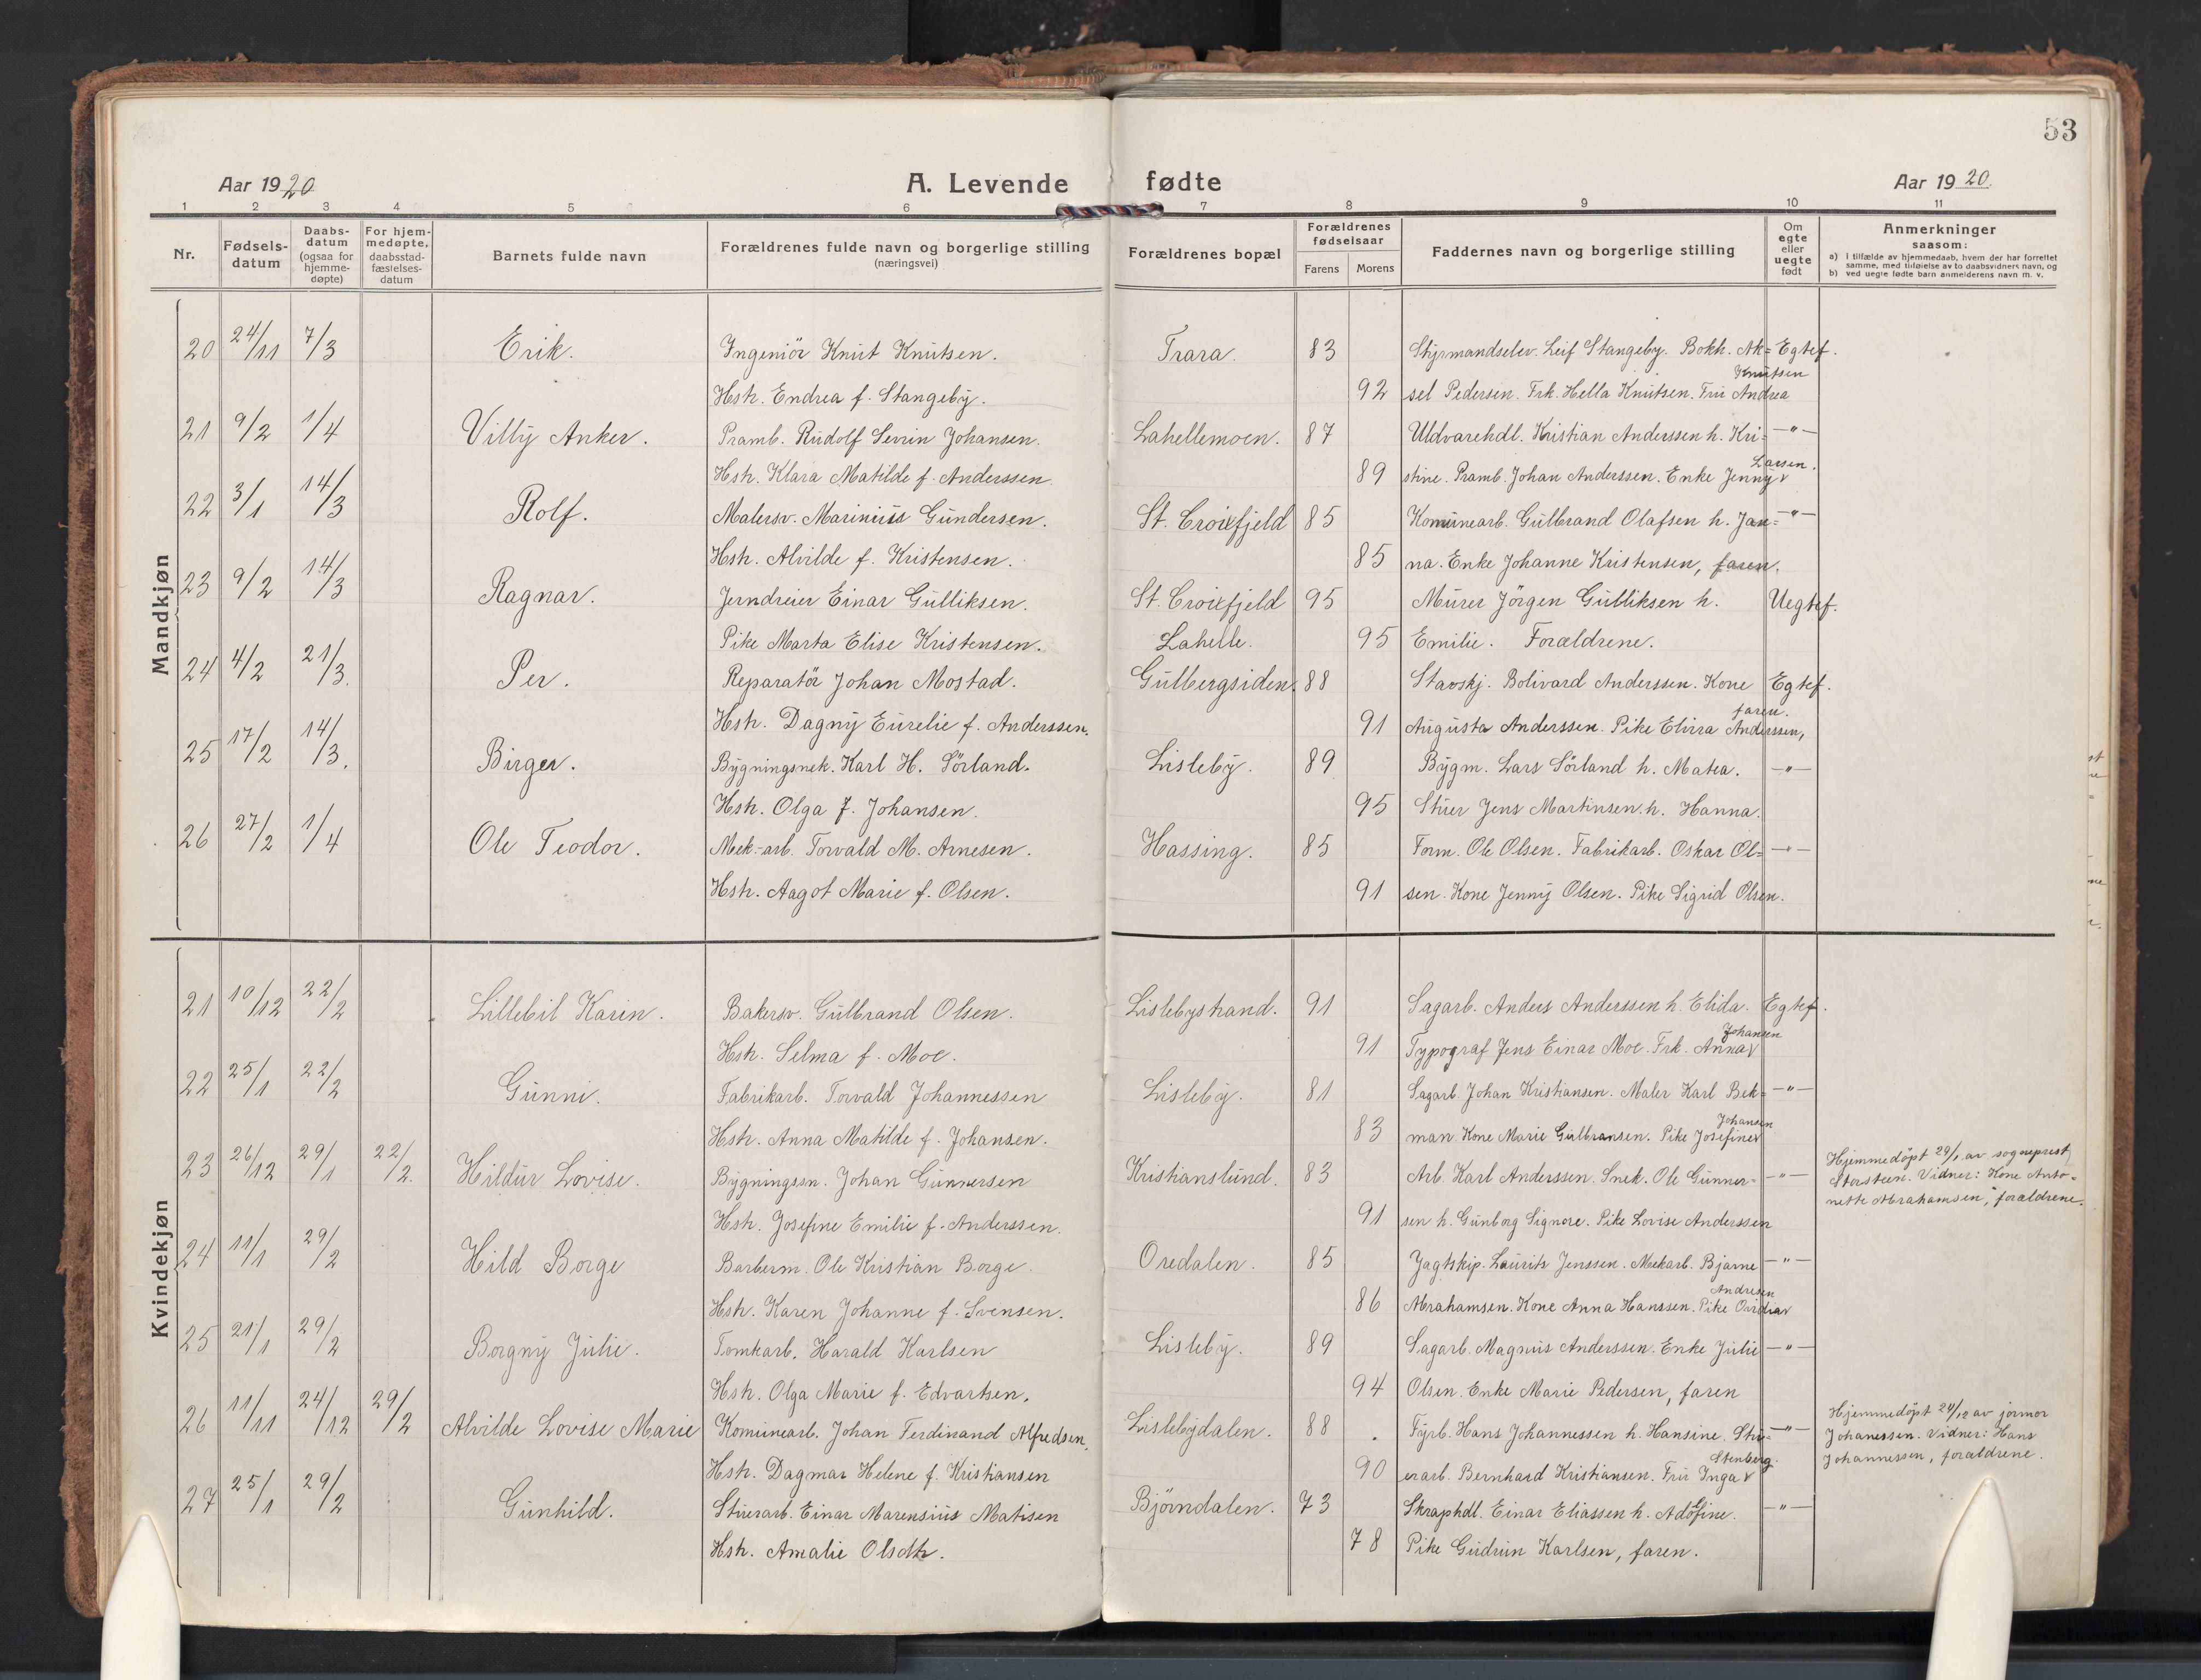 53
Aar 1920
A. Levende fødte
Aar 1920.
1 2 3 4 5 6 7 8 9 10 11
Nr.
Fødsels-
datum
Daabs-
datum
(ogsaa for
hjemme-
døpte)
For hjem-
medøpte,
daabsstad-
fæstelses-
datum
Barnets fulde navn
Forældrenes fulde navn og borgerlige stilling
(næringsvei)
Forældrenes bopæl
Forældrenes
fødselsaar
Farens Morens
Faddernes navn og borgerlige stilling
Om
egte
eller
uegte
født
Anmerkninger
saasom:
a) i tilfælde av hjemmedaab, hvem der har forrettet
samme, med tilføielse av to daabsvidners navn, og
b) ved uegte fødte barn anmelderens navn m. v.
Mandkjøn
20 24/11 7/3 Erik. Ingeniör Knut Knutsen. Trara. 83 Styrmandselev. Leif Stangeby. Bokh. Ak= Egtef.
Knutsen
Hstr. Endrea f. Stangeby. 92 sel Pedersen. Frk. Hella Knutsen. Fru Andrea
21 9/2 1/4 Villy Anker. Pramb. Rudolf Sevrin Johansen. Lahellemoen. 87 Uldvarehdl. Kristian Anderssen h. Kri= —"—
Larsen.
Hstr. Klara Matilde f. Anderssen. 89 stine. Pramb. Johan Anderssen. Enke Jenny v
22 3/1 14/3 Rolf. Malersv. Marinius Gundersen. St. Croixfjeld 85 Komunearb. Gulbrand Olafsen h. Jan= —"—
Hstr. Alvilde f. Kristensen. 85 na. Enke Johanne Kristensen, faren.
23 9/2 14/3 Ragnar. Jerndreier Einar Gulliksen. St. Croixfjeld 95 Murer Jörgen Gulliksen h. Uegtef.
Pike Marta Elise Kristensen. Lahelle. 95 Emilie. Forældrene.
24 4/2 21/3. Per. Reparatör Johan Mostad. Gulbergsiden. 88 Stavskj. Bolivard Anderssen. Kone Egtef.
faren.
Hstr. Dagny Eurelie f. Anderssen. 91 Augusta Anderssen. Pike Elvira Anderssen,
25 17/2 14/3. Birger. Bygningsnek. Karl H. Sörland. Lisleby. 89 Bygm. Lars Sörland h. Matea. —"—
Hstr. Olga f. Johansen. 95 Stuer Jens Martinsen. h. Hanna.
26 27/2 1/4 Ole Teodor. Mek.-arb. Torvald M. Arnesen. Hassing. 85 Form. Ole Olsen. Fabrikarb. Oskar Ol= —"—
Hstr. Aagot Marie f. Olsen. 91 sen. Kone Jenny Olsen. Pike Sigrid Olsen.
Kvindekjøn
21 10/12 22/2 Lillebil Karin. Bakersv. Gulbrand Olsen. Lislebystrand. 91 Sagarb. Anders Anderssen h. Elida. Egtef.
Johansen
Hstr. Selma f. Moe. 91 Typograf Jens Einar Moe. Frk. Anna v
22 25/1 22/2 Gunni. Fabrikarb. Torvald Johannessen Lisleby. 81 Sagarb. Johan Kristiansen. Maler Karl Bek= —"—
Johansen
Hstr. Anna Matilde f. Johansen. 83 man. Kone Marie Gulbransen. Pike Josefine v
23 26/12 29/1 22/2. Hildur Lovise. Bygningssn. Johan Gunnersen Kristianslund. 83 Arb. Karl Anderssen. Snek. Ole Gunner= —"— Hjemmedöpt 29/1 av sogneprest
Storsteen. Vidner: Kone Anto=
nette Abrahamsen, forældrene.
Hstr. Josefine Emilie f. Anderssen. 91 sen h. Gunborg Signore. Pike Lovise Anderssen
24 11/1 29/2 Hild Borge Barberm. Ole Kristian Borge. Oredalen. 85 Jagtskip. Laurits Jenssen. Mekarb. Bjarne —"—
Andresen
Hstr. Karen Johanne f. Svensen. 86 Abrahamsen. Kone Anna Hanssen. Pike Ovidia v
25 21/1 29/2 Borgny Julie. Tomkarb. Harald Karlsen Lisleby. 89 Sagarb. Magnus Anderssen. Enke Julie —"—
Hstr. Olga Marie f. Edvartsen. 94 Olsen. Enke Marie Pedersen, faren
26 11/11 24/12 29/2 Alvilde Lovise Marie Komunearb. Johan Ferdinand Alfredsen. Lislebydalen. 88 Fyrb. Hans Johannessen h. Hansine. Stu= —"— Hjemmedöpt 24/12 av jormor
Johanessen. Vidner: Hans
Johannessen, forældrene.
Stenberg.
Hstr. Dagmar Helene f. Kristiansen 90 erarb. Bernhard Kristiansen. Fru Inga v
27 25/1 29/2 Gunhild. Stuerarb. Einar Marensius Matisen Björndalen. 73 Skraphdl. Einar Eliassen h. Adolfine. —"—
Hstr. Amalie Olsdtr. 78 Pike Gudrun Karlsen, faren.